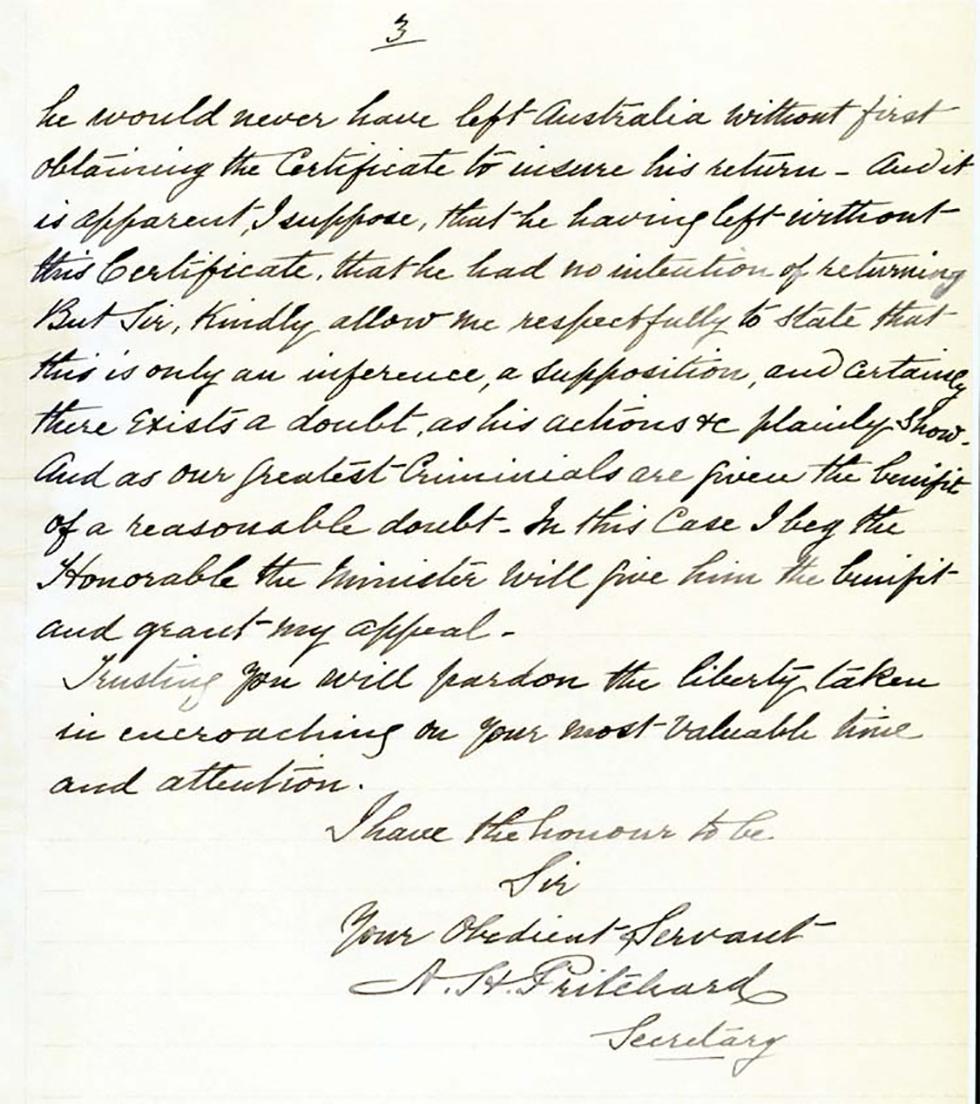 3
he would never have left Australia without first
obtaining the Certificate to insure his return - And it
is apparent, I suppose, that he having left without
this Certificate, that he had no intention of returning
But Sir, Kindly allow me respectfully to state that
this is only an inference, a supposition, and certainly
there exists a doubt, as his actions &c plainly show.
And as our greatest Criminials are given the benifit
of a reasonable doubt - In this Case I beg the
Honorable the Minister will give him the benifit
and grant my appeal -
Trusting you will pardon the liberty taken
in encroaching on your most valuable time
and attention.
I have the honour to be
Sir
Your Obedient Servant
A. H. Pritchard
Secretary